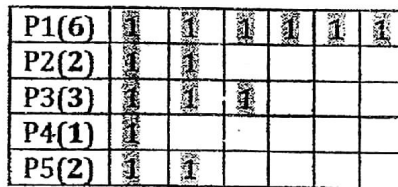 P1(6) 1 1 1 1 1 1
P2(2) 1 1
P3(3) 1 1 1
P4(1) 1
P5(2) 1 1